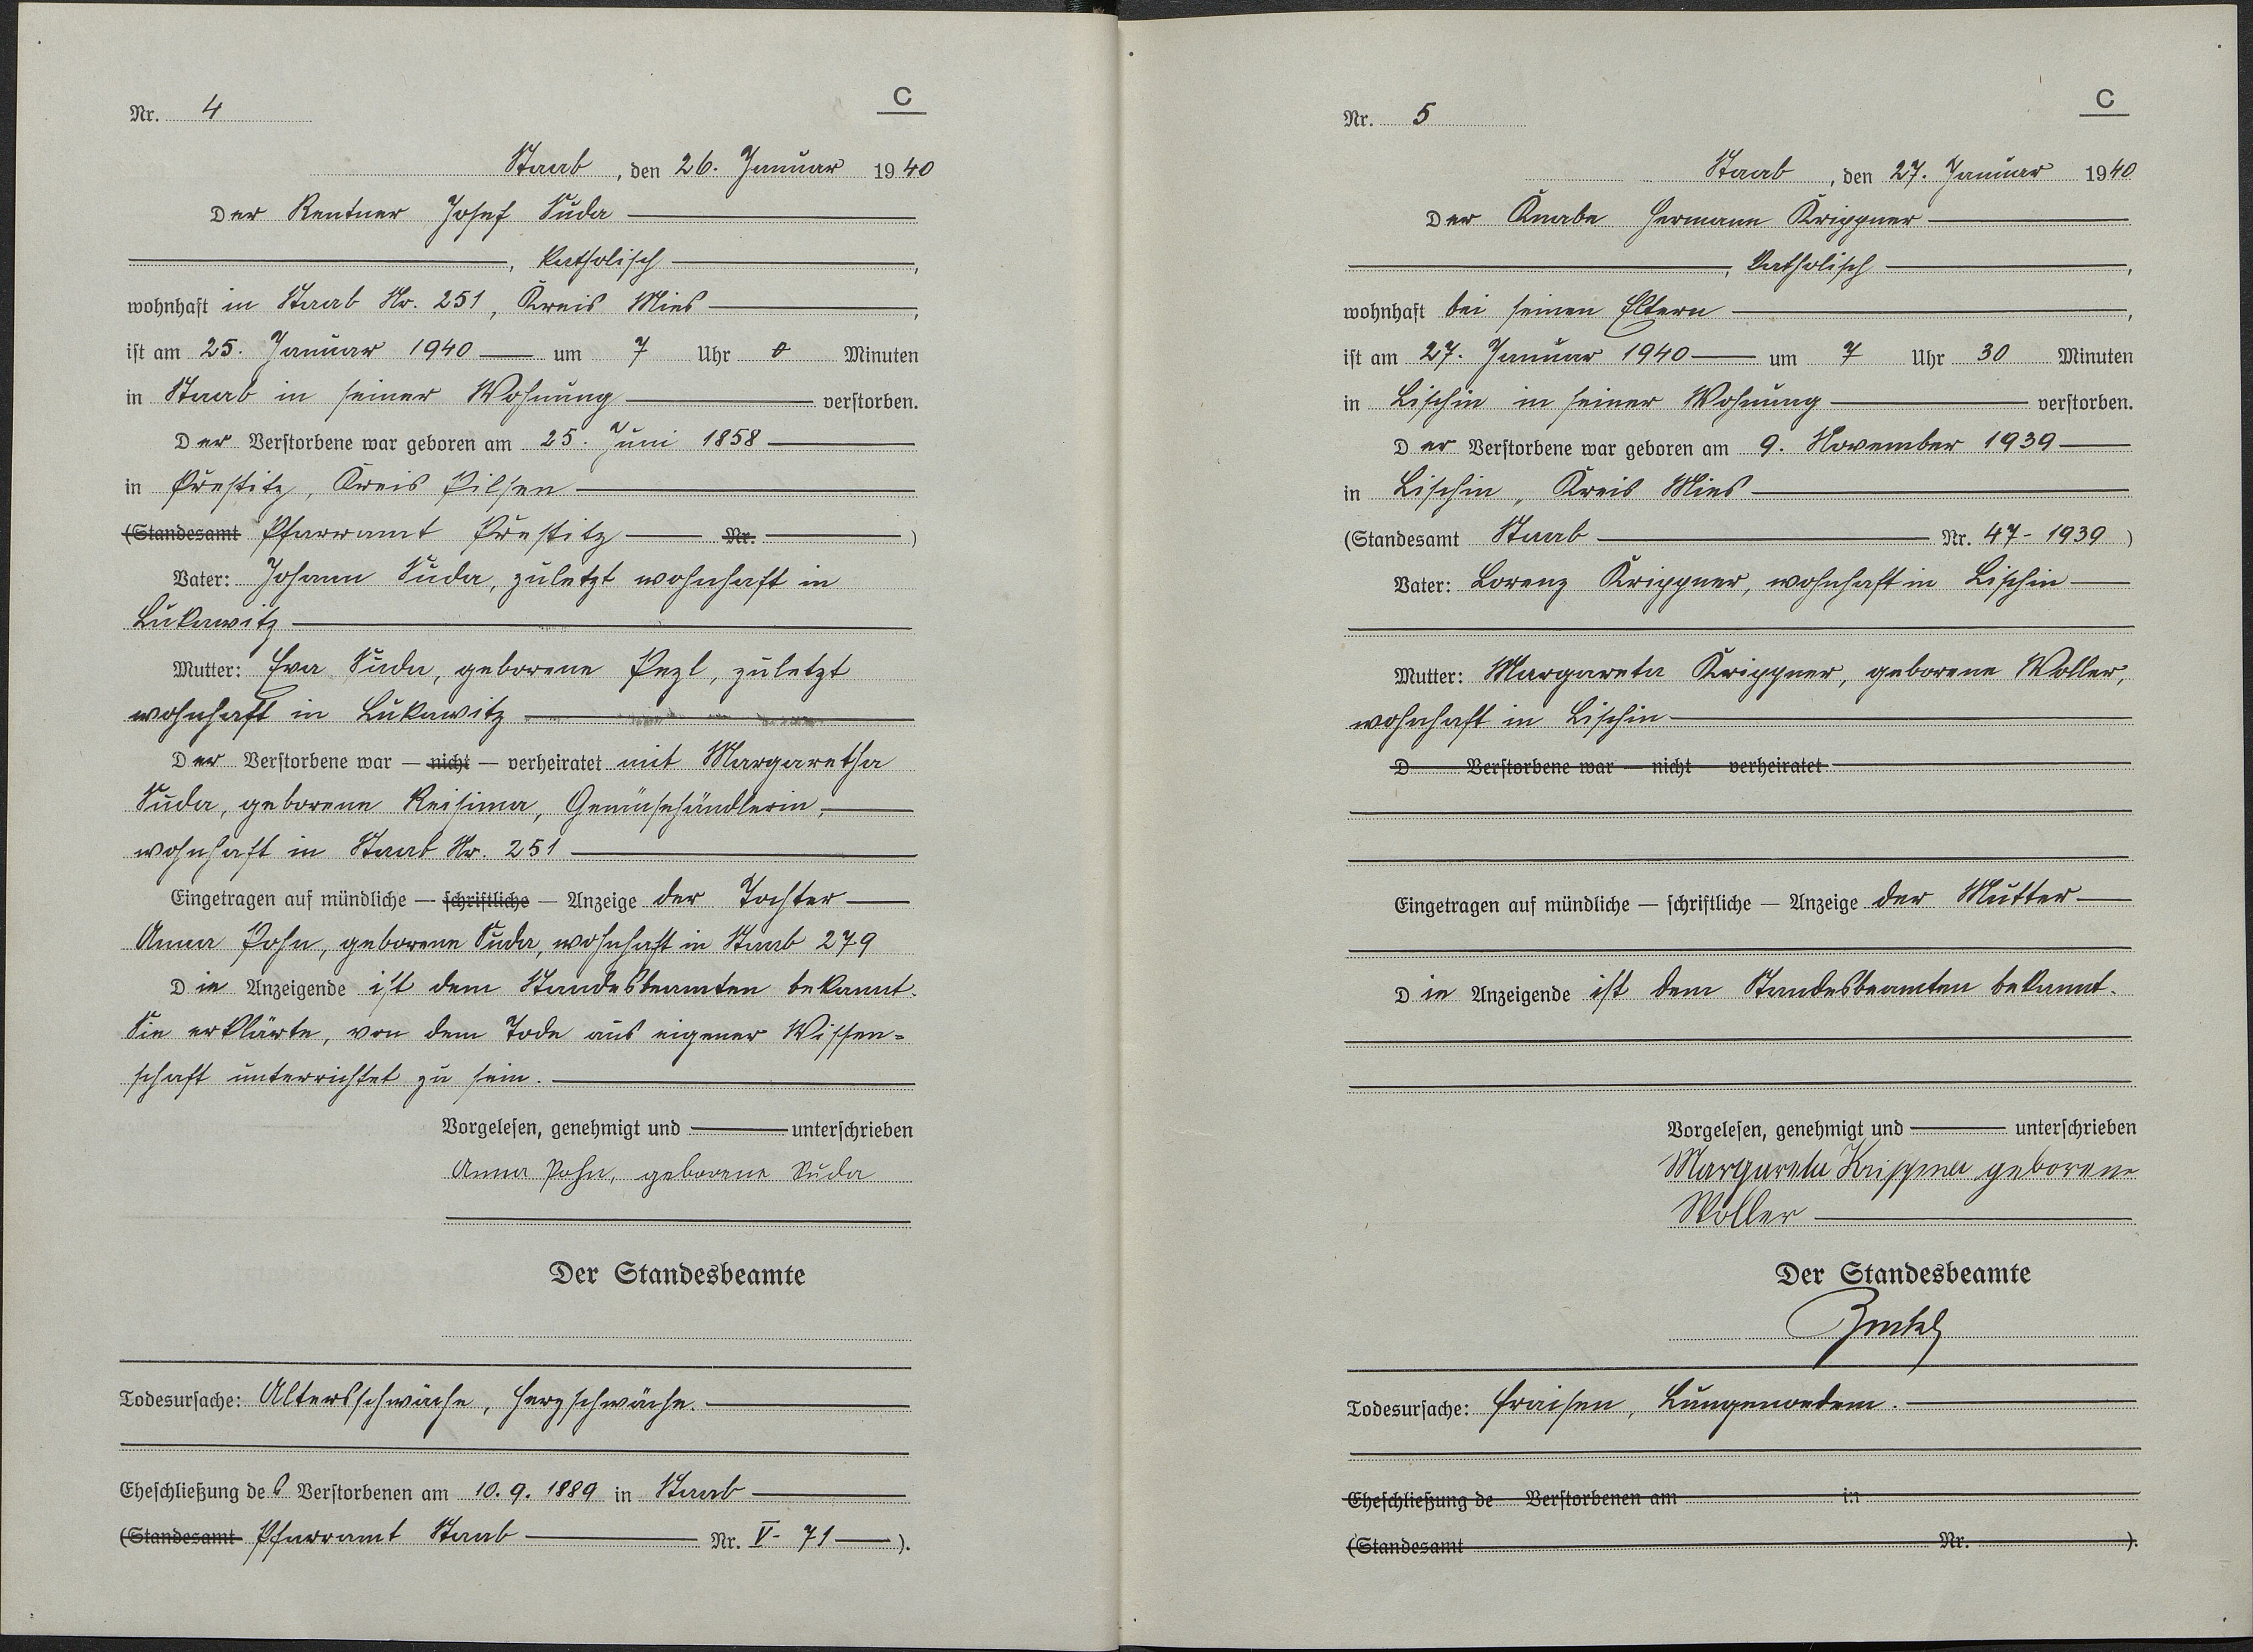 Nr. 4
C
Staab, den 26. Januar 1940
Der Rentner Josef Suda
, katholisch,
wohnhaft in Staab Nr. 251, Kreis Mies,
ist am 25. Januar 1940 um 7 Uhr 0 Minuten
in Staab in seiner Wohnung verstorben.
Der Verstorbene war geboren am 25. Juni 1858
in Přestitz, Kreis Pilsen
(Standesamt Pfarramt Přestitz Nr. )
Vater: Johann Suda, zuletzt wohnhaft in
Lukawitz
Mutter: Eva Suda, geborene Pezl, zuletzt
wohnhaft in Lukawitz
Der Verstorbene war — nicht — verheiratet mit Margaretha
Suda, geborene Reisima, Gemüsehändlerin,
wohnhaft in Staab Nr. 251
Eingetragen auf mündliche — schriftliche — Anzeige der Tochter
Anna Pohn, geborene Suda, wohnhaft in Staab 279
Die Anzeigende ist dem Standesbeamten bekannt.
Sie erklärte, von dem Tode aus eigener Wissen=
schaft unterrichtet zu sein.
Vorgelesen, genehmigt und unterschrieben
Anna Pohn, geborene Suda
Der Standesbeamte
Todesursache: Altersschwäche, Herzschwäche.
Eheschließung des Verstorbenen am 10.9.1889 in Staab
(Standesamt Pfarramt Staab Nr. V- 71 ).
Nr. 5
C
Staab, den 27. Januar 1940
Der Knabe Hermann Krippner
, katholisch,
wohnhaft bei seinen Eltern,
ist am 27. Januar 1940 um 7 Uhr 30 Minuten
in Lischin in seiner Wohnung verstorben.
Der Verstorbene war geboren am 9. November 1939
in Lischin, Kreis Mies
(Standesamt Staab Nr. 47- 1939 )
Vater: Lorenz Krippner, wohnhaft in Lischin
Mutter: Margareta Krippner, geborene Woller,
wohnhaft in Lischin
D Verstorbene war — nicht — verheiratet
Eingetragen auf mündliche — schriftliche — Anzeige der Mutter
Die Anzeigende ist dem Standesbeamten bekannt.
Vorgelesen, genehmigt und unterschrieben
Margareta Krippner geborene
Woller
Der Standesbeamte
Todesursache: Fraisen, Lungenoedem.
Eheschließung de Verstorbenen am in
(Standesamt Nr. ).